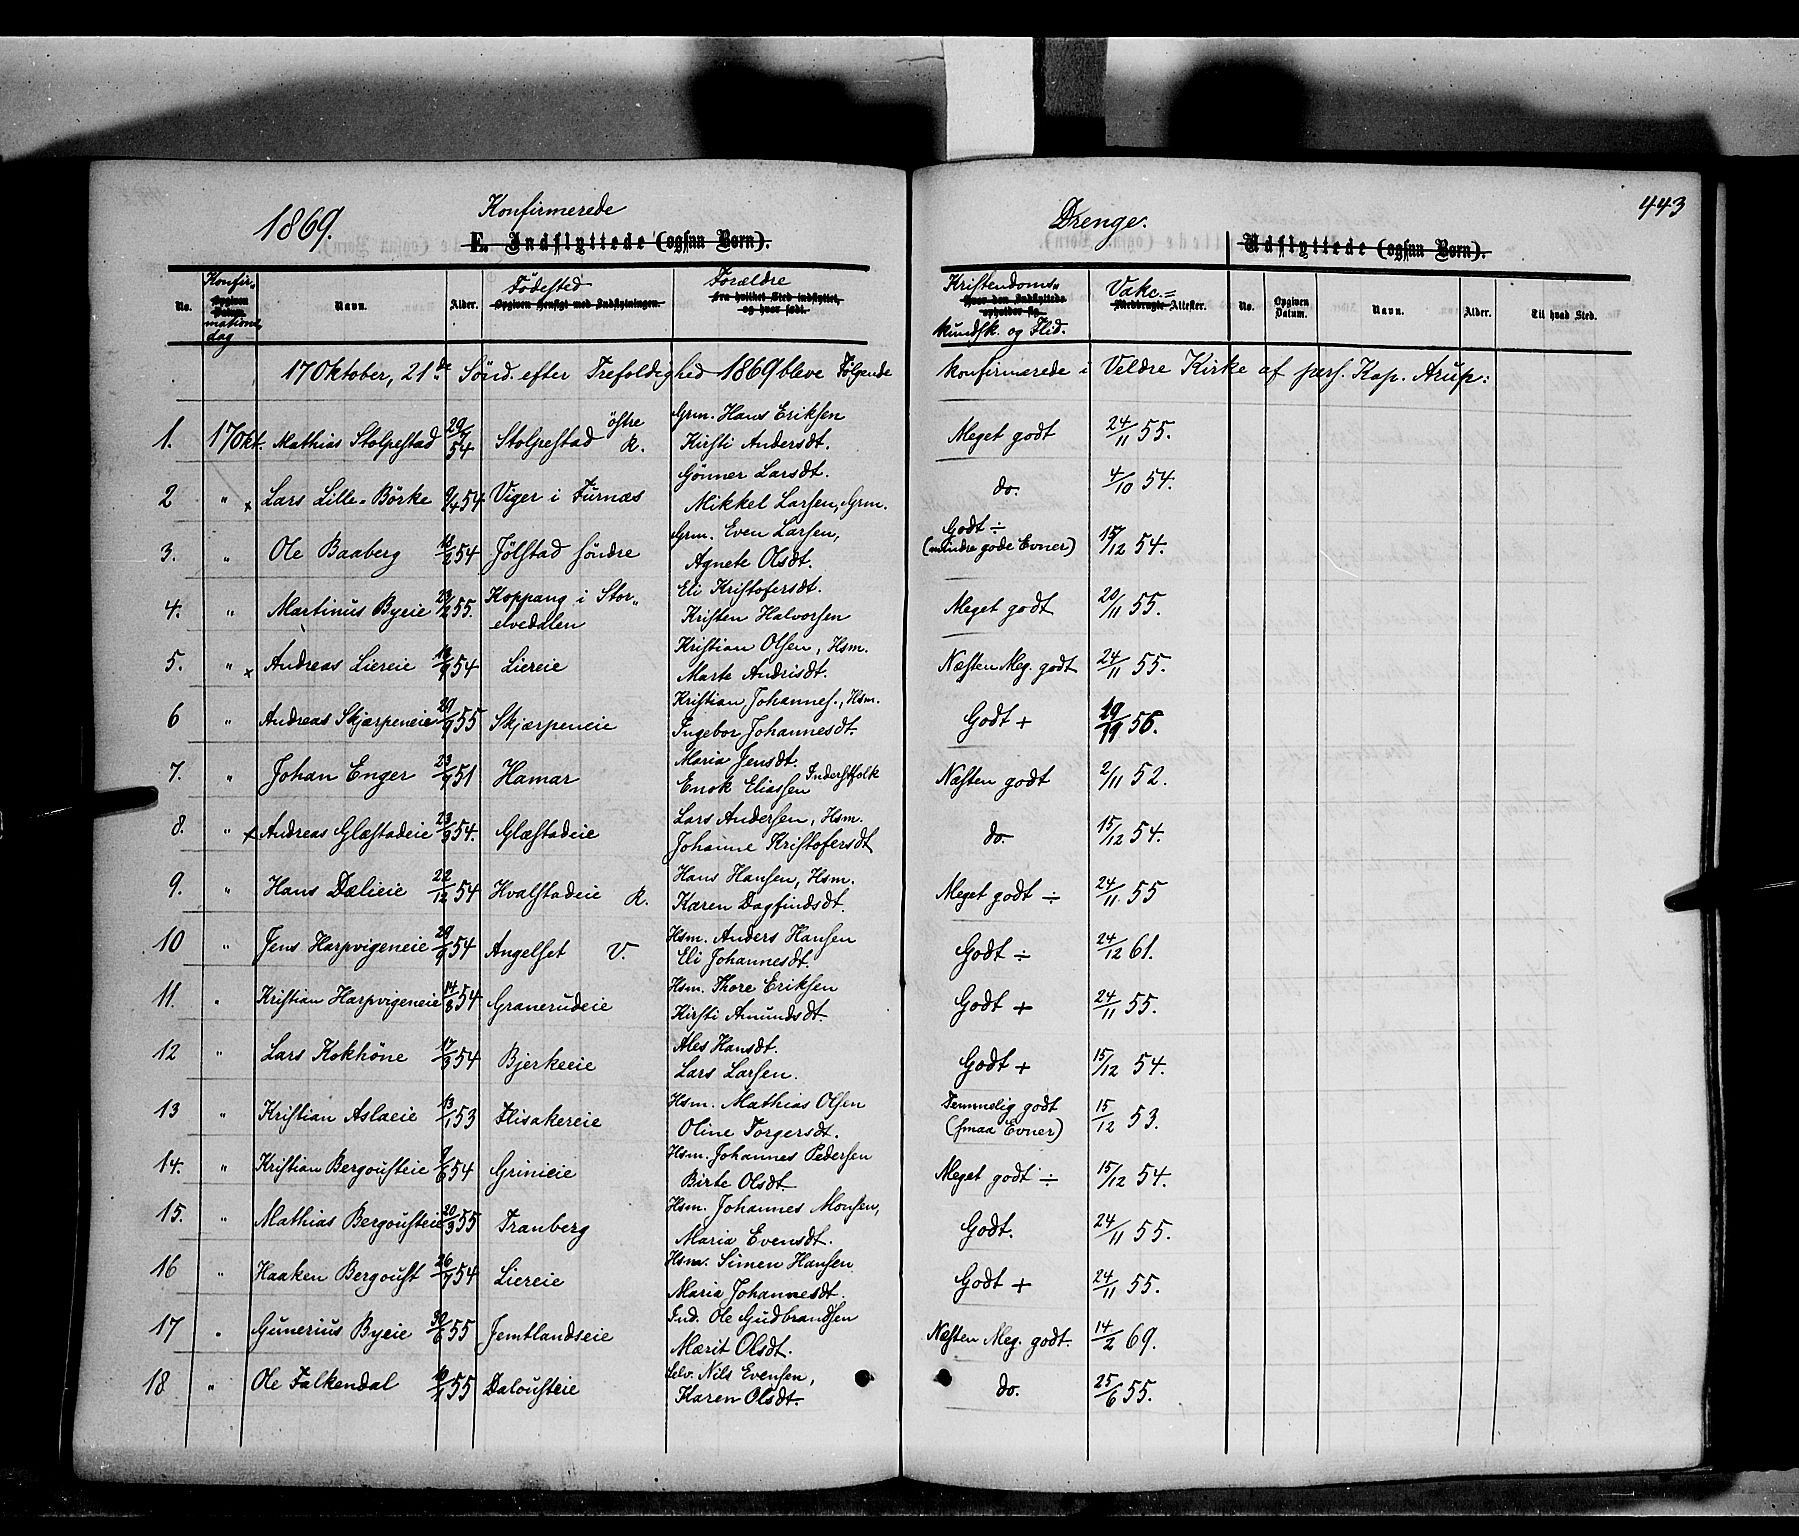 443
1869.
Konfirmerede
Drenge.
E. Indflyttede (ogsaa Børn).
Udflyttede (ogsaa Børn).
No. Konfir- mations dag Navn. Alder. Fødested Forældre Kristendoms- kundsk. og Flid. Vakc.= No. Opgiven Datum. Navn. Alder. Til hvad Sted.
Opgiven Datum Opgiven Hensigt med Indflytningen. fra hvilket Sted indflyttet, og hvor født. Hvor den Indflyttede opholder sig. Medbragte Attester.
17 Oktober, 21de Sønd. efter Trefoldighed 1869 bleve Følgende konfirmerede i Veldre Kirke af pers. Kap. Arup:
1. 17 Okt. Mathias Stolpestad 29/7 54 Stolpestad østre R. Grm. Hans Eriksen Kirsti Andersdt. Meget godt 24/11 55.
2 " x Lars Lille-Børke 9/4 54 Viger i Furnæs Gönner Larsdt. Mikkel Larsen, Grm. do. 4/10 54.
3. " Ole Baaberg 18/2 54 Jølstad søndre Grm. Even Larsen, Agnete Olsdt. Godt ÷ (mindre gode Evner) 15/12 54.
4. " Martinus Byeie 23/2 55. Koppang i Stor- elvedalen Eli Kristofersdt. Kristen Halvorsen Meget godt 20/11 55.
5. " x Andreas Liereie 54 Liereie Kristian Olsen, Hsm. Marte Andrisdt. Næsten Meg. godt 24/11 55.
6 " Andreas Skjærpeneie 55 Skjærpeneie Kristian Johannes., Hsm. Ingebor Johannesdt. Godt + 56.
7. " Johan Enger 51 Hamar Maria Jensdt. Enok Eliassen Inderstfolk Næsten godt 2/11 52.
8. " x Andreas Glæstadeie 23/9 54. Glæstadeie Lars Andersen, Hsm. Johanne Kristofersdt do. 15/12 54.
9. " Hans Dælieie 22/12 54 Hvalstadeie R. Hans Hansen, Hsm. Karen Dagfindsdt. Meget godt ÷ 24/11 55
10 " Jens Harpvigeneie 54 Angelset V. Hsm. Anders Hansen Eli Johannesdt. Godt ÷ 24/12 61.
11. " Kristian Harpvigeneie 14/8 54 Granerudeie Hsm. Thore Eriksen Kirsti Amundsdt. Godt + 24/11 55.
12 " Lars Kokhöne 17/3 54 Bjerkeeie Ales Hansdt. Lars Larsen. Godt + 15/12 54.
13 " Kristian Aslaeie 13/1 53 Flisakereie Hsm. Mathias Olsen Oline Torgersdt. Temmelig godt (smaa Evner) 15/12 53.
14. " Kristian Bergousteie 54 Grinieie Hsm. Johannes Pedersen Birte Olsdt. Meget godt ÷ 15/12 54.
15. " Mathias Bergousteie 20/3 55 Tranberg Hsm. Johannes Monsen, Maria Evensdt. Godt. 24/11 55.
16 " Haaken Bergoust 54 Liereie Hsm. Simen Hansen Maria Johannesdt. Godt + 24/11 55.
17 " Gunerius Byeie 30/6 55 Jemtlandseie Ind. Ole Gudbrandsen Marit Olsdt. Næsten Meg. godt. 14/2 69.
18 " Ole Falkendal 55 Dalousteie Selv. Nils Evensen, Karen Olsdt. do. 25/6 55.